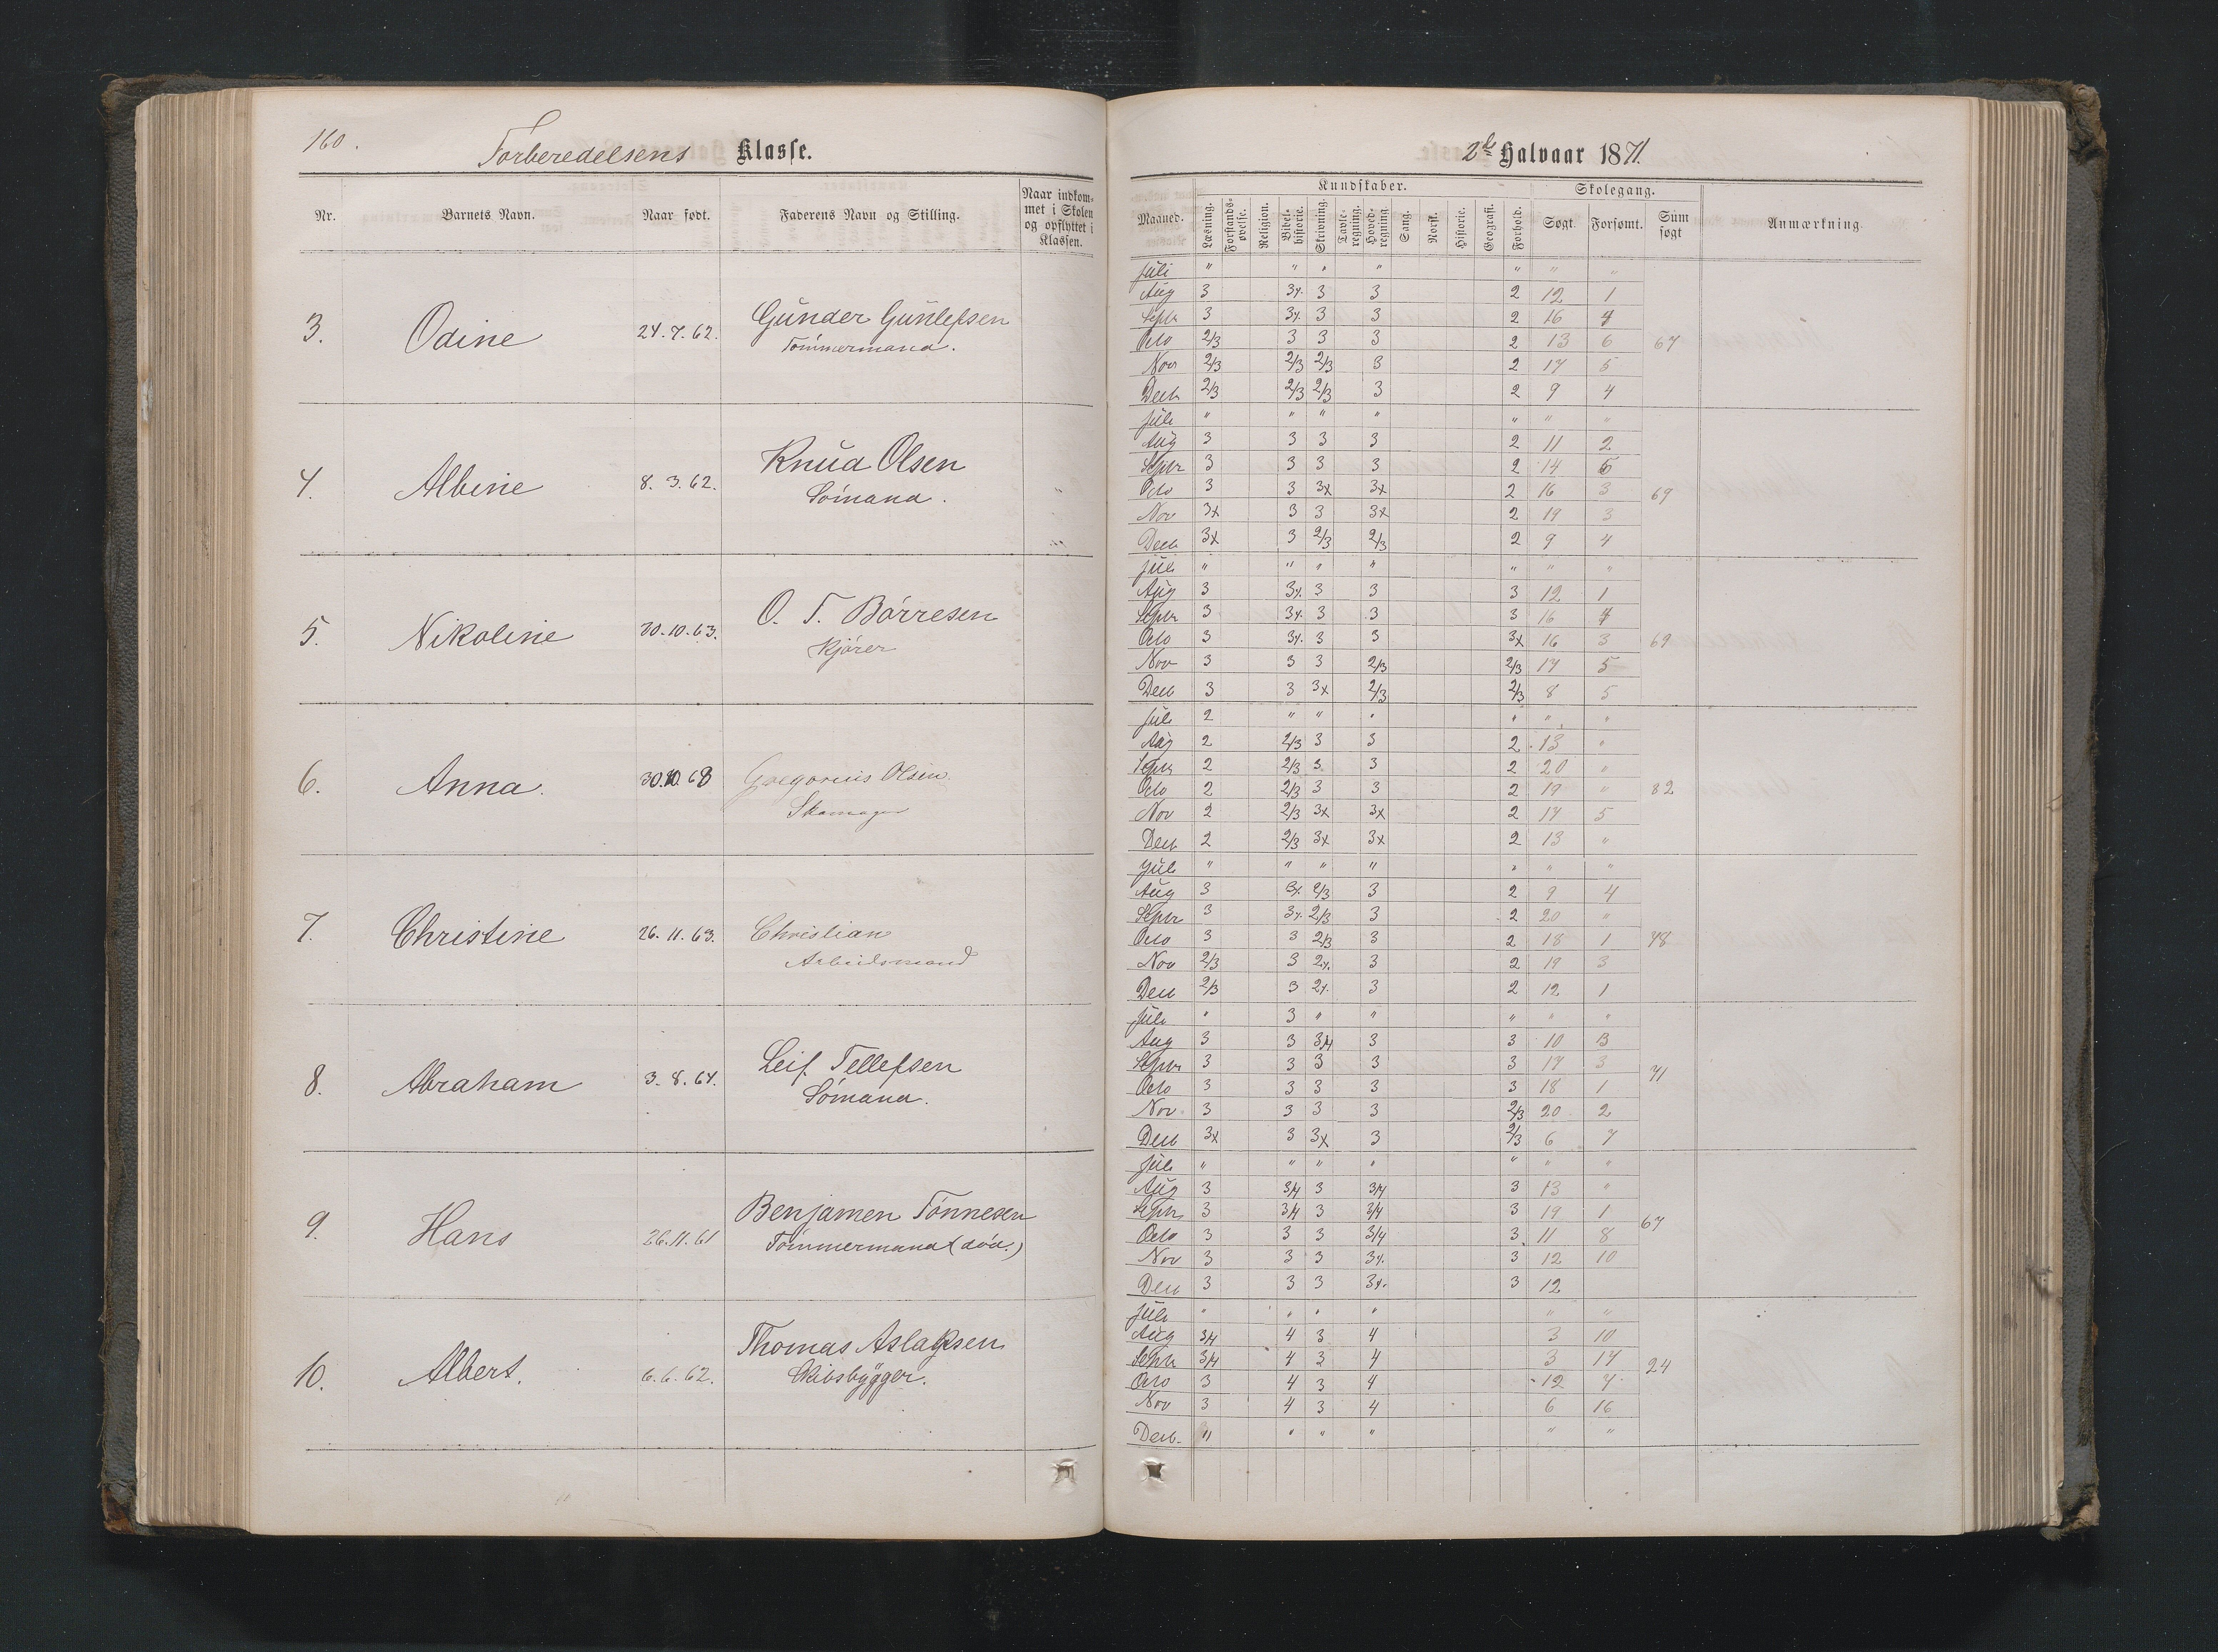 160.
Forberedelsens Klasse.
Nr. Barnets Navn. Naar født. Faderens Navn og Stilling. Naar indkommet i Skolen og opflyttet i Klassen.
3. Odine 24.7.62. Gunder Gunlefsen
Tømmermand.
4. Albine 8.3.62. Knud Olsen
Sømand.
5. Nikoline 30.10.63. O. T. Børresen
Kjører
6. Anna. 30.10.68 Gregorius Olsen
Skomager
7. Christine 26.11.63. Christian
Arbeidsmand
8. Abraham 3.8.64. Leif Tellefsen
Sømand.
9. Hans 26.11.61 Benjamen Tønnesen
Tømmermand (død.)
10. Albert. 6.6.62. Thomas Aslaksen
Skibsbygger.
2det Halvaar 1871.
Kundskaber. Skolegang.
Maaned. Læsning. Forstandsøvelse. Religion. Bibelhistorie. Skrivning. Tavleregning. Hovedregning. Sang. Norsk. Historie. Geografi. Forhold. Søgt. Forsømt. Sum søgt Anmærkning.
Juli " " " " " " "
Aug 3 3/4. 3 3 2 12 1
Septr 3 3/4. 3 3 2 16 4
Octo 2/3 3 3 3 2 13 6 67
Nov 2/3 2/3 2/3 3 2 17 5
Decb 2/3 2/3 2/3 3 2 9 4
Juli " " " " " " "
Aug 3 3 3 3 2 11 2
Septr 3 3 3 3 2 14 6
Octo 3 3 3x 3x 2 16 3 69
Nov 3x 3 3 3x 2 19 3
Decb 3x 3 2/3 2/3 2 9 4
Juli " " " " " " "
Aug 3 3/4. 3 3 3 12 1
Septr 3 3/4. 3 3 3 16 4
Octo 3 3/4. 3 3 3x 16 3 69
Nov 3 3 3 2/3 2/3 17 5
Decb 3 3 3x 2/3 2/3 8 5
Juli 2 " " " " " "
Aug 2 2/3 3 3 2 13 "
Septr 2 2/3 3 3 2 20 "
Octo 2 2/3 3 3 2 19 " 82
Nov 2 2/3 3x 3x 2 17 5
Decb 2 2/3 3x 3x 2 13 "
Juli " " " " " " "
Aug 3 3/4. 2/3 3 2 9 4
Septr 3 3/4. 2/3 3 2 20 "
Octo 3 3 2/3 3 2 18 1 78
Nov 2/3 3 2/4. 3 2 19 3
Decb 2/3 3 2/4. 3 2 12 1
Juli " 3 " " " " "
Aug 3 3 3/4 3 3 10 3
Septr 3 3 3 3 3 17 3
Octo 3 3 3 3 3 18 1 71
Nov. 3 3 3 3 2/3 20 2
Decb 3x 3 3x 3 2/3 6 7
Juli " " " " " " "
Aug 3 3/4 3 3/4 3 13 "
Septr 3 3/4 3 3/4 3 19 1
Octo 3 3 3 3/4 3 11 8 67
Nov 3 3 3 3/4. 3 12 10
Decb 3 3 3 3/4. 3 12
Juli " " " " " "
Aug 3/4 4 3 4 3 10
Septr 3/4 4 3 4 3 17
Octo 3 4 3 4 12 7 24
Nov 3 4 3 4 6 16
Decb. " " " " " "